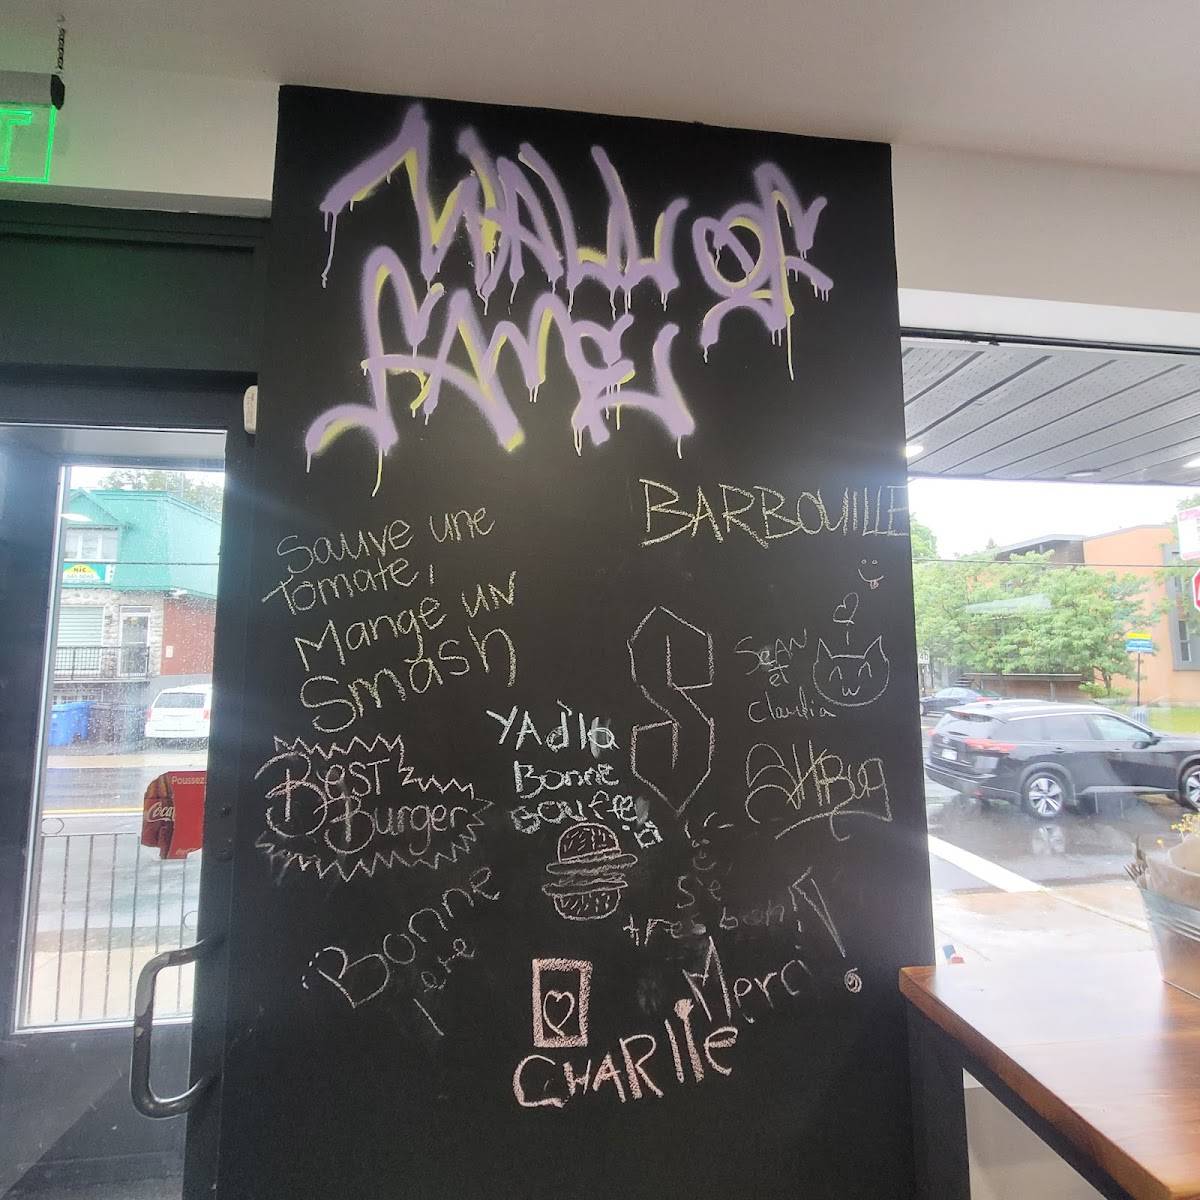 WALL OF
FAME
BARBOUILLE
Sauve une
Tomate,
Mange un
Smash
SEAN
et
Claudia
YAdla
Bonne
Bouffe!
BEST
Burger
Bonne
Merci!
CHARLIE
Poussez
Coca
NIC